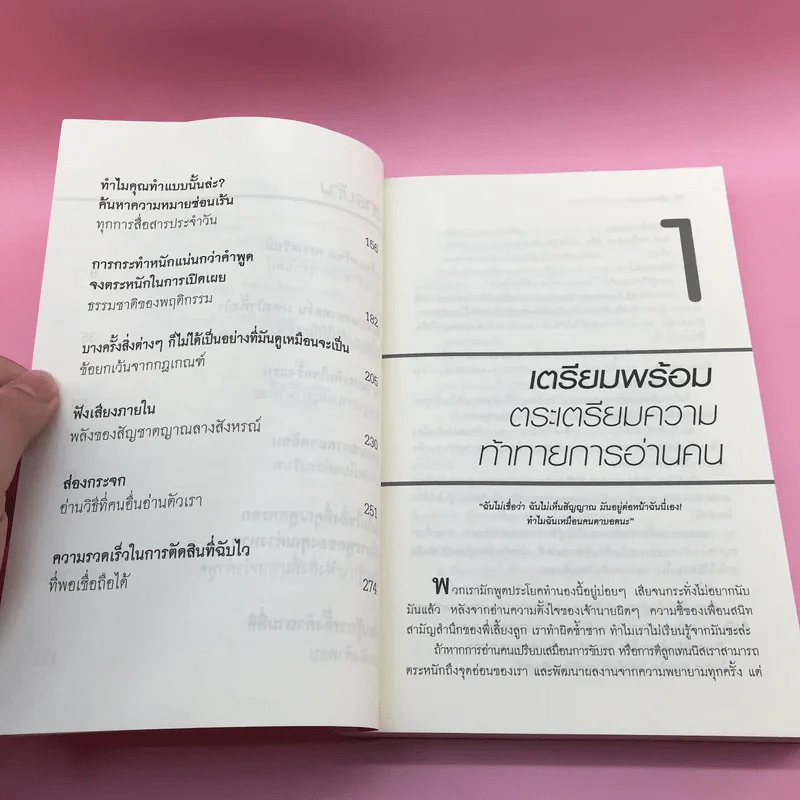 ทำไมคุณทำแบบนั้นล่ะ?
ค้นหาความหมายซ่อนเร้น
ทุกการสื่อสารประจำวัน
156
การกระทำหนักแน่นกว่าคำพูด
จงตระหนักในการเปิดเผย
ธรรมชาติของพฤติกรรม
182
บางครั้งสิ่งต่างๆ ก็ไม่ได้เป็นอย่างที่มันดูเหมือนจะเป็น
ข้อยกเว้นจากกฎเกณฑ์
205
ฟังเสียงภายใน
พลังของสัญชาตญาณลางสังหรณ์
230
ส่องกระจก
อ่านวิธีที่คนอื่นอ่านตัวเรา
251
ความรวดเร็วในการตัดสินที่ฉับไว
ที่พอเชื่อถือได้
274
1
เตรียมพร้อม
ตระเตรียมความ
ท้าทายการอ่านคน
"ฉันไม่เชื่อว่า ฉันไม่เห็นสัญญาณ มันอยู่ต่อหน้าฉันนี่เอง!
ทำไมฉันเหมือนคนตาบอดนะ"
พวกเรามักพูดประโยคทำนองนี้อยู่บ่อยๆ เสียจนกระทั่งไม่อยากนับ
มันแล้ว หลังจากอ่านความตั้งใจของเจ้านายผิดๆ ความซื่อของเพื่อนสนิท
สามัญสำนึกของพี่เลี้ยงลูก เราทำผิดซ้ำซาก ทำไมเราไม่เรียนรู้จากมันซะล่ะ
ถ้าหากการอ่านคนเปรียบเสมือนการขับรถ หรือการตีลูกเทนนิสเราสามารถ
ตระหนักถึงจุดอ่อนของเรา และพัฒนาผลงานจากความพยายามทุกครั้ง แต่